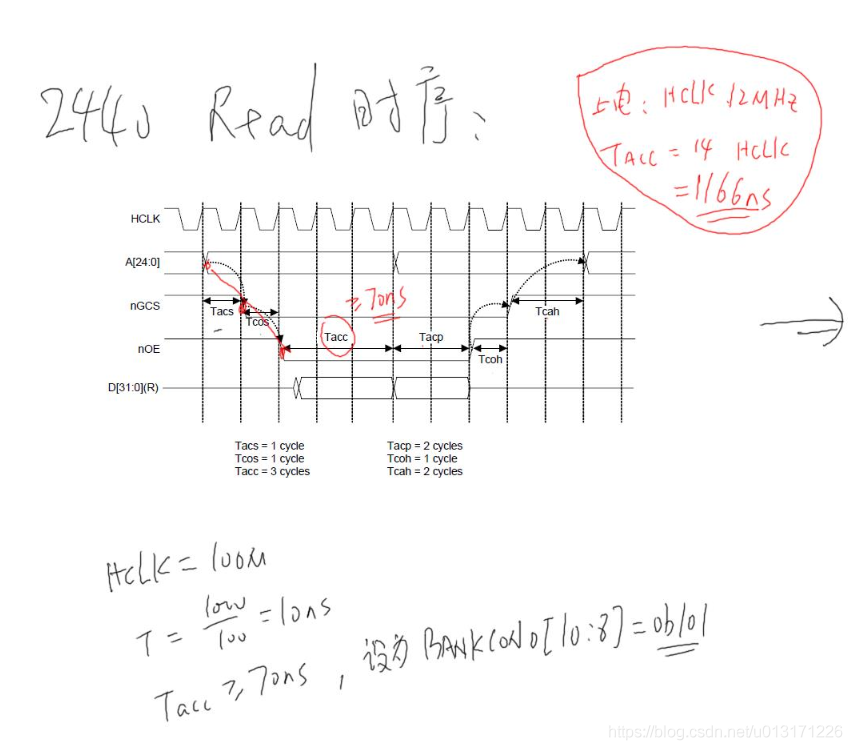 2440 Read 时序:
上电: HCLK 12MHz
TACC = 14 HCLK
=1166ns
HCLK
A[24:0]
nGCS
Tacs
Tcos
≥70ns
Tcah
nOE
Tacc
Tacp
Tcoh
D[31:0](R)
Tacs = 1 cycle
Tcos = 1 cycle
Tacc = 3 cycles
Tacp = 2 cycles
Tcoh = 1 cycle
Tcah = 2 cycles
HCLK = 100M
T = 1000/100 = 10ns
Tacc ≥ 70ns, 设为 BANKCON0[10:8] = 0b101
https://blog.csdn.net/u013171226